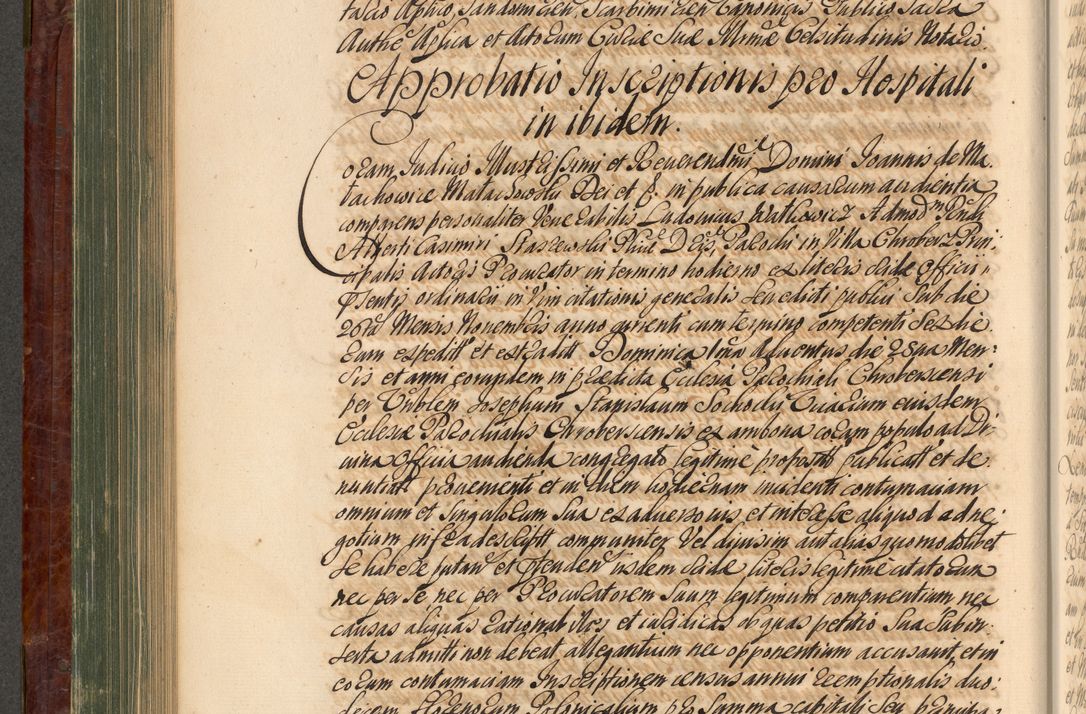 Authē Aplica et Actorum Curiæ Suæ Mrmæ Celsitudinis Notario.
Approbatio Inscriptionis pro Hospitali
in ibidem.
Coram Judicio Illustrissimi et Reverendmi Domini Joannis de Ma-
tachowice Matachowski Dei et p. in publica causarum audientia
comparens personaliter Venerabilis Ludovicus Watkowicz Admod'm Rndi
Alberti Casimiri Staszewski Parochi in Villa Chroberz Prin-
cipalis Actoris Procurator in termino hodierno ex literis eiusdem Officii
pṣentis ordinarii in vim citationis generalis seu edicti publici sub die
26ta Mensis Novembris anno currenti cum termino competenti Sex die
rum expedit et extradit Dominica Ima Adventus die 28va Men-
sis et anni eorundem in prædicta Ecclesia Parochiali Chrobersciensi
per Vnblem Josephum Stanislaum Sochocki Vicarium eiusdem
Ecclesiæ Parochialis Chrobersciensis ex ambona coram populo ad Di-
vina Officia audienda congregato legitime proposit publicatt et de-
nuntiatt provenienti et in diem hodiernam incidenti contumaciam
omnium et singulorum sua ex adverso vis et interesse aliquod ad ne-
gotium infradescriptt communiter vel divisim aut alias quomodolibet
se habere putan et prtenden iisdem literis legitime citatorum
nec per se nec per Procuratorem suum legitimum comparentium nec
causas aliquas rationabiles et iuridicas ob quas petitio sua subin-
serta admitti non debeat allegantium nec opponentium accusavit et in
eorum contumaciam Inscriptionem census annui reemptionalis duo-
decem florenorum Polonicalium pro summa capitali seu